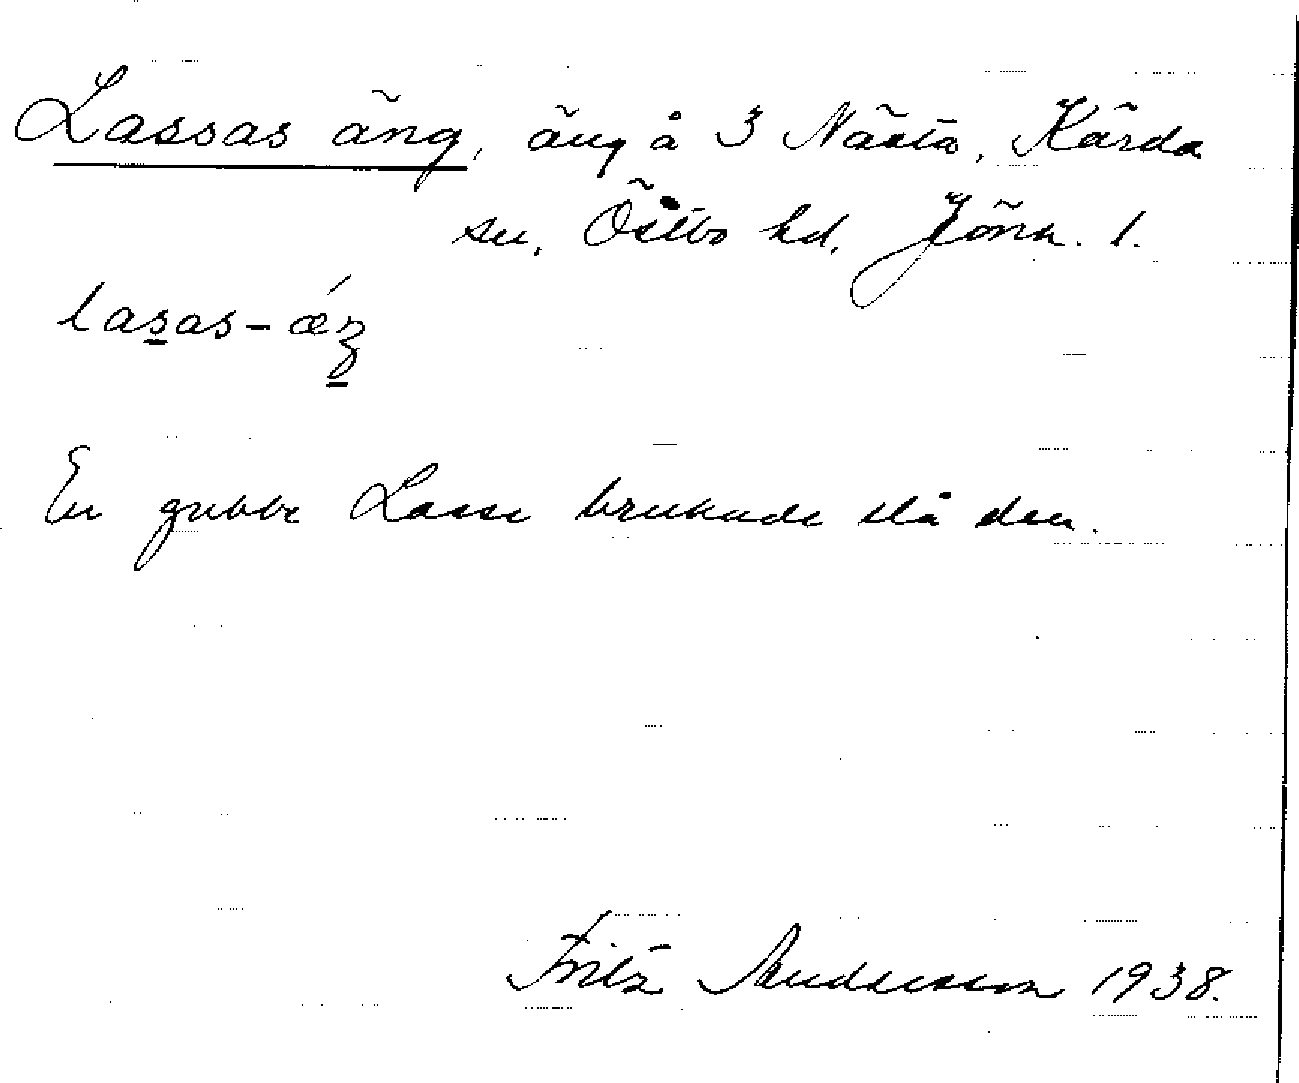 Lassas äng, äng å 3 Nästa, Kärda
sn, Östbo hd, Jönk. l.
lasas-ǽŋ
En gubbe Lasse brukade slå den.
Fritz Andersson 1938.